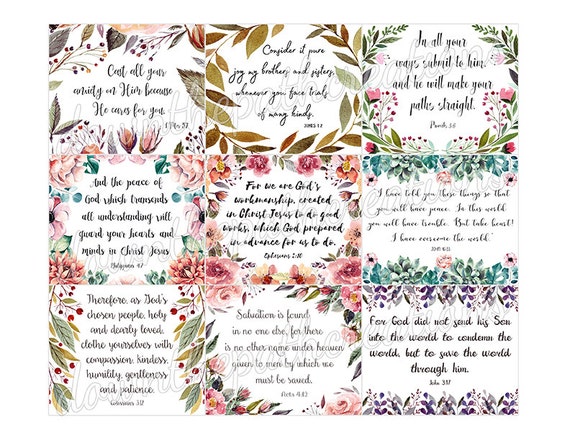 Cast all your
anxiety on Him because
He cares for you.
Consider it pure
joy my brothers and sisters,
whenever you face trials
of many kinds.
JAMES 1:2
In all your
ways submit to him,
and he will make your
paths straight.
Proverbs 3:6
And the peace of
God which transcends
all understanding will
guard your hearts and
minds in Christ Jesus
Philippians 4:7
For we are God's
workmanship, created
in Christ Jesus to do good
works, which God prepared
in advance for us to do.
Ephesians 2:10
"I have told you these things so that
you will have peace. In this world
you will have trouble. But take heart!
I have overcome the world."
JOHN 16:33
Therefore, as God's
chosen people, holy
and dearly loved,
clothe yourselves with
compassion, kindness,
humility, gentleness
and patience.
Colossians 3:12
Salvation is found
in no one else, for there
is no other name under heaven
given to men by which we
must be saved.
Acts 4:12
For God did not send his Son
into the world to condemn the
world, but to save the world
through him.
John 3:17